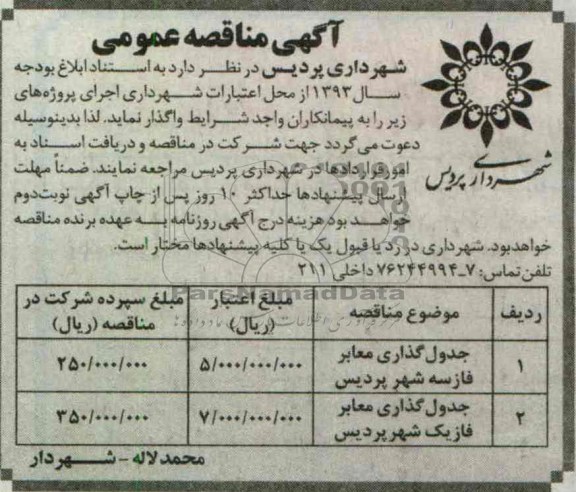 آگهی مناقصه عمومی
شهرداری پردیس در نظر دارد به استناد ابلاغ بودجه
سال ۱۳۹۳ از محل اعتبارات شهرداری اجرای پروژه‌های
زیر را به پیمانکاران واجد شرایط واگذار نماید. لذا بدینوسیله
دعوت می‌گردد جهت شرکت در مناقصه و دریافت اسناد به
امور قراردادها در شهرداری پردیس مراجعه نمایند. ضمناً مهلت
ارسال پیشنهادها حداکثر ۱۰ روز پس از چاپ آگهی نوبت دوم
خواهد بود هزینه درج آگهی روزنامه به عهده برنده مناقصه
خواهد بود. شهرداری در رد یا قبول یک یا کلیه پیشنهادها مختار است.
تلفن تماس: ۷ـ۷۶۲۴۴۹۹۴ داخلی ۲۱۱
شهرداری پردیس
ParsNamadData
ردیف موضوع مناقصه مبلغ اعتبار (ریال) مبلغ سپرده شرکت در مناقصه (ریال)
۱ جدول گذاری معابر فاز سه شهر پردیس ۵/۰۰۰/۰۰۰/۰۰۰ ۲۵۰/۰۰۰/۰۰۰
۲ جدول گذاری معابر فاز یک شهر پردیس ۷/۰۰۰/۰۰۰/۰۰۰ ۳۵۰/۰۰۰/۰۰۰
محمد لاله - شهردار